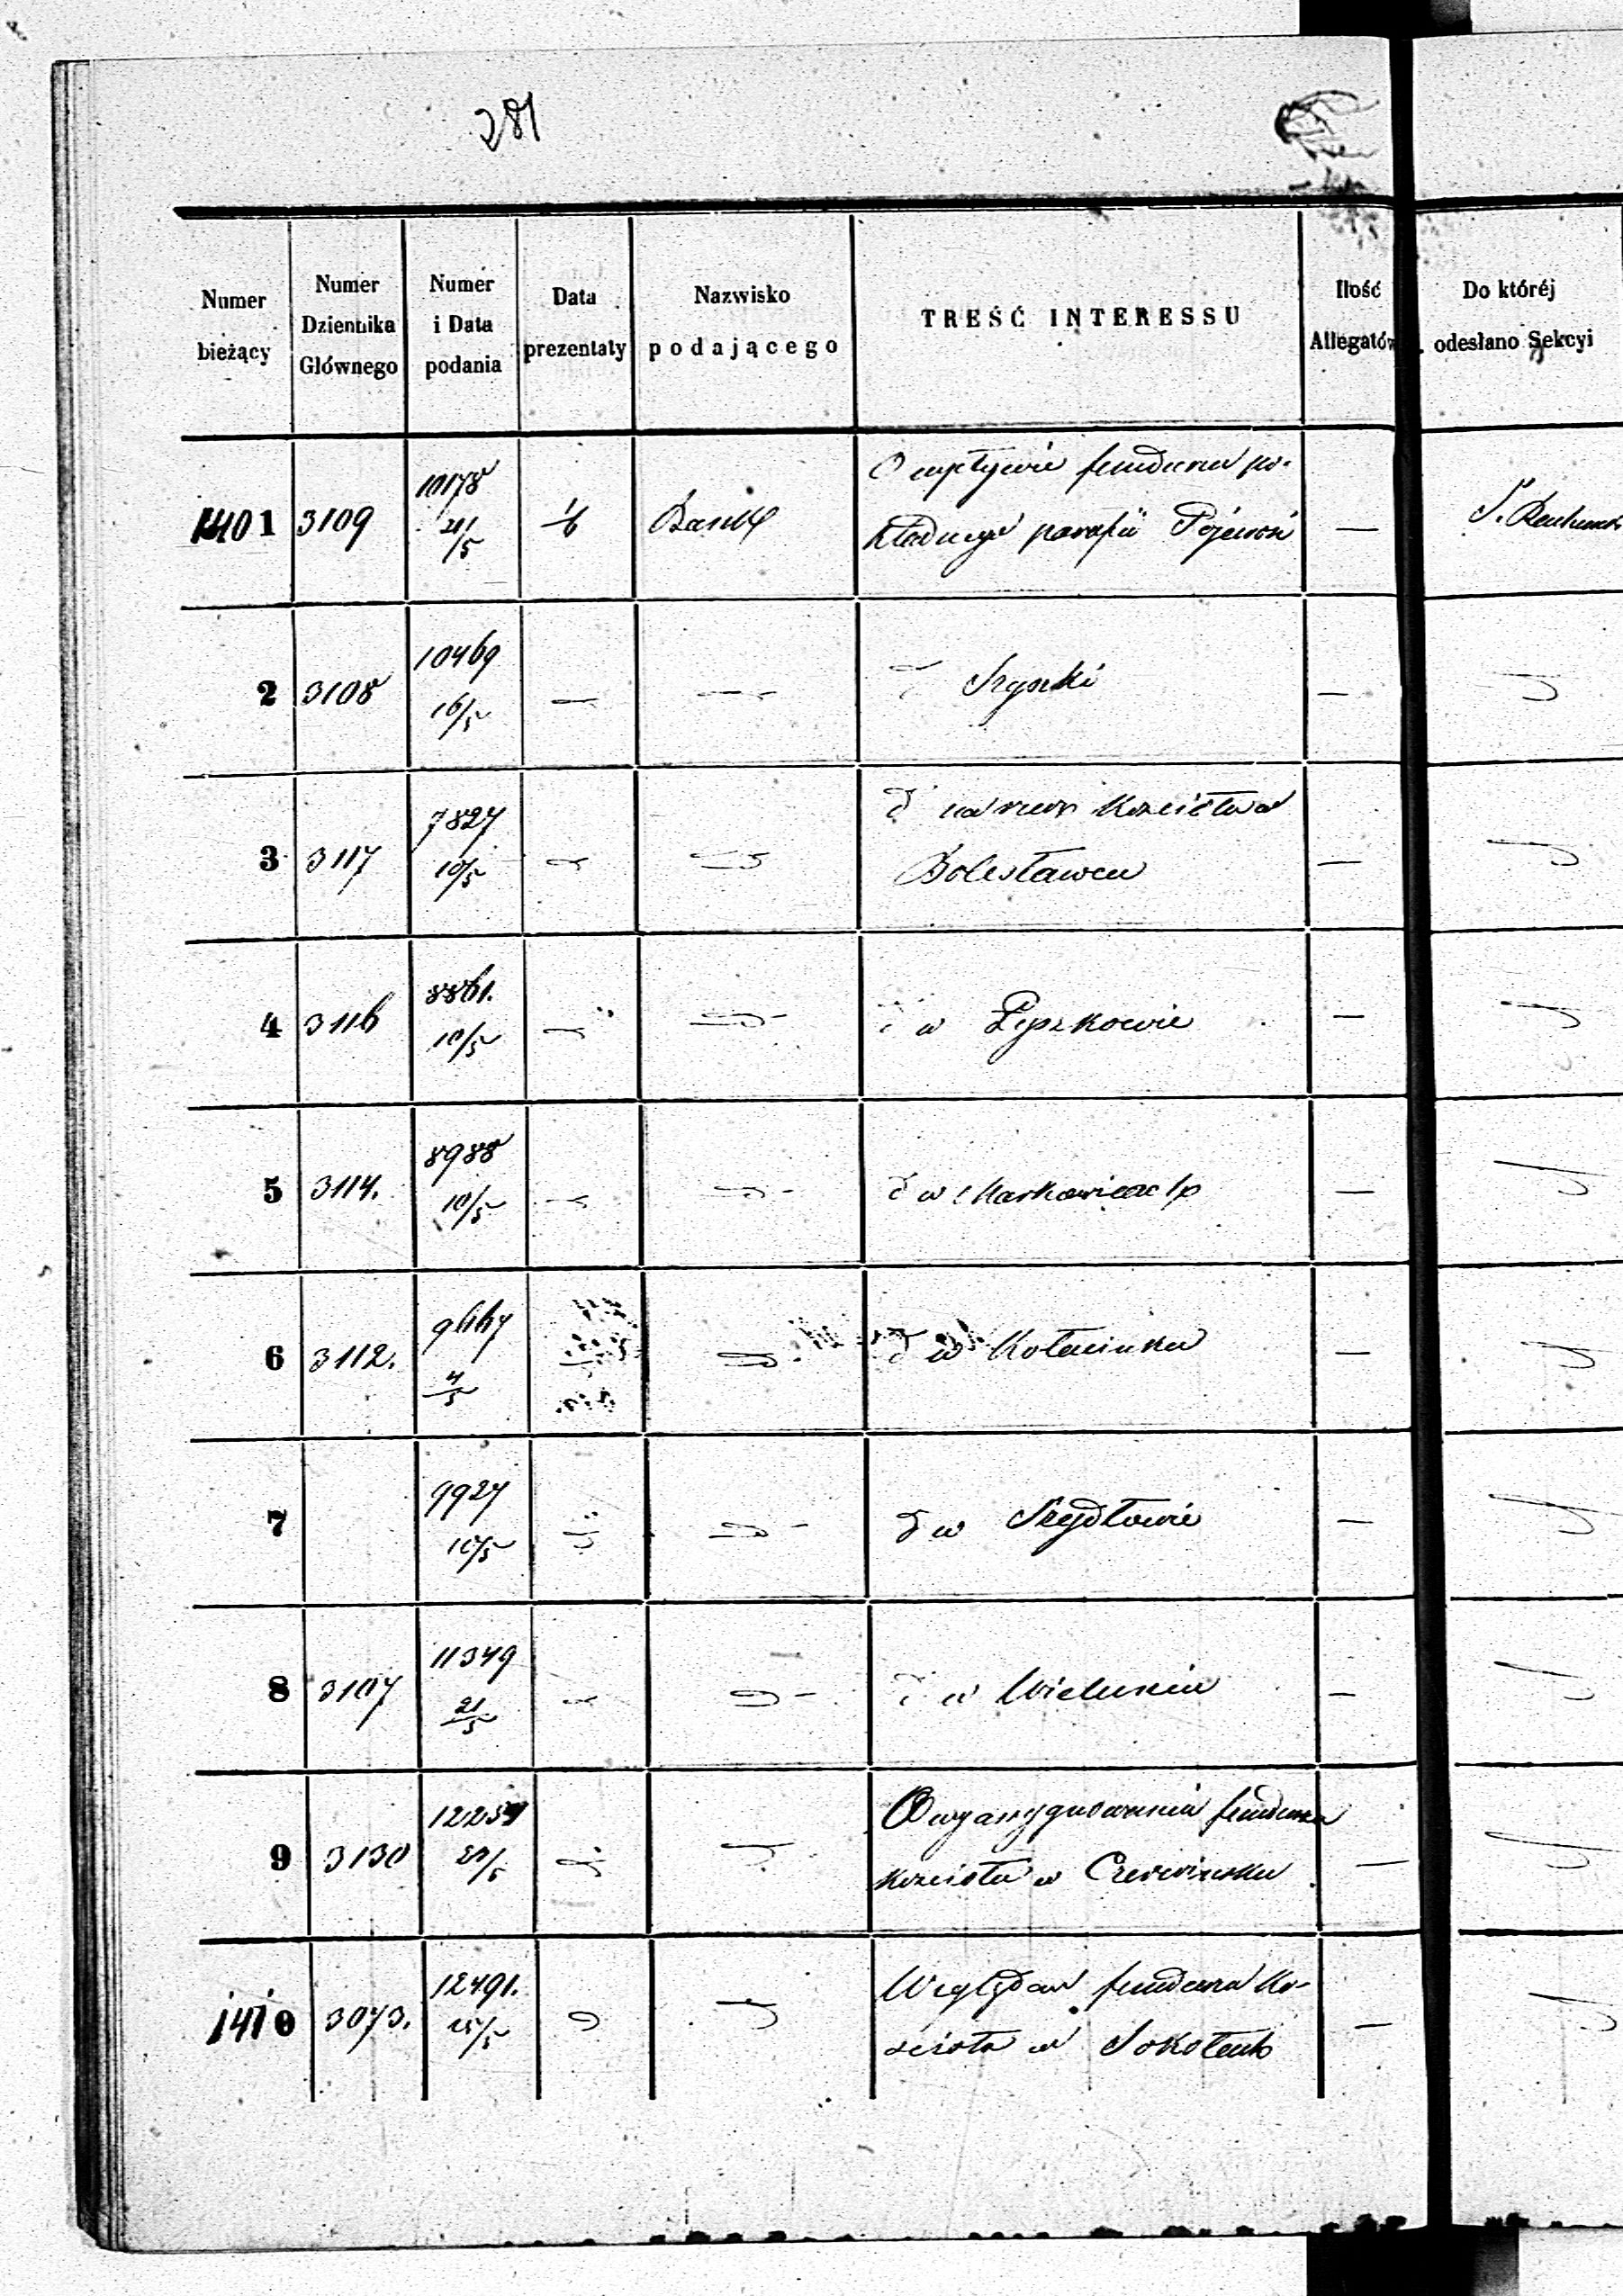 281
Numer bieżący | Numer Dziennika Głównego | Numer i Data podania | Data prezentaty | Nazwisko podającego | TREŚĆ INTERESSU | Ilość Allegatów | Do któréj odesłano Sekcyi
1401 | 3109 | 10178 21/5 | 1/6 | Bank | O wpływie funduszu po-
kładnego parafii Pojewoń | — | S. Rachunk
2 | 3108 | 10469 16/5 | — | — | d Szyszki | — | "
3 | 3117 | 7827 10/5 | " | " | d na rzecz Kościoła w
Bolesławcu | — | "
4 | 3116 | 8861. 10/5 | " | " | d w Lyszkowie | — | "
5 | 3114. | 8988 10/5 | " | " | d w Markowicach | — | "
6 | 3112. | 9667 4/5 | " | " | d w Kołacinku | — | "
7 | 9927 10/5 | " | " | d w Szydłowie | — | "
8 | 3107 | 11349 21/5 | " | " | d w Wieluniu | — | "
9 | 3130 | 12257 | " | " | O wyasygnowaniu funduszu
kościoła w Czerwińsku | — | "
1410 | 3073. | 12491. 25/5 | " | " | Względem funduszu Ko-
ścioła w Sokołach | — | "